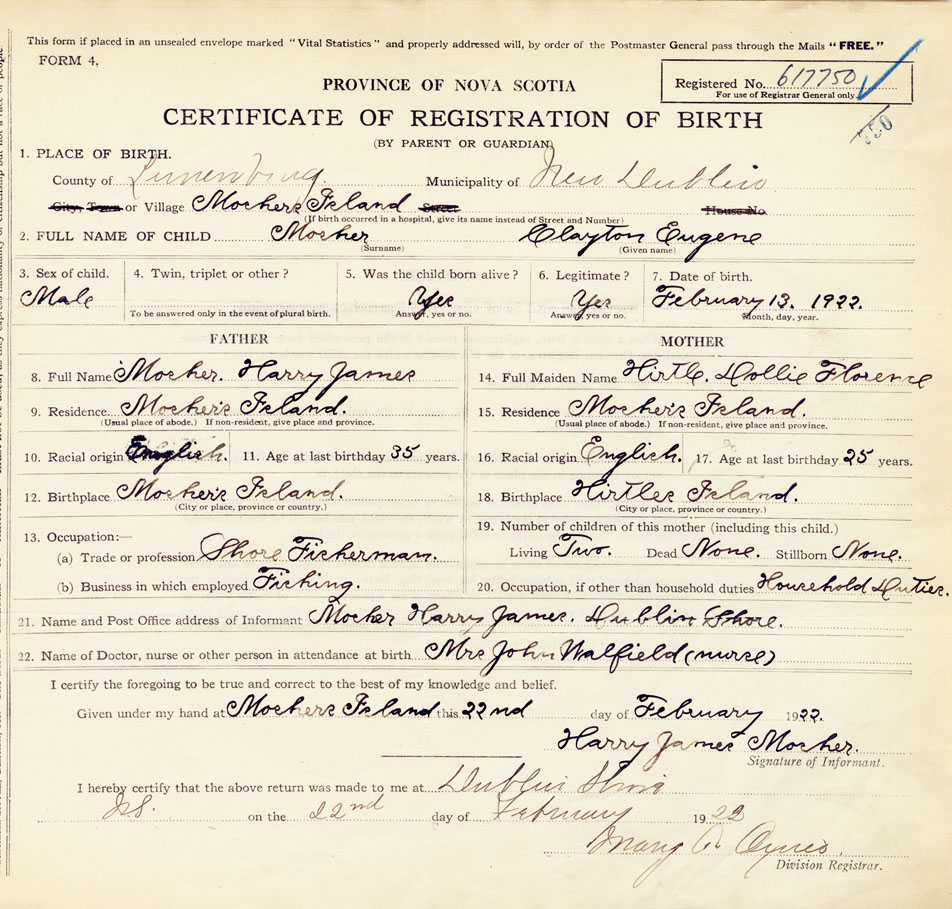 This form if placed in an unsealed envelope marked "Vital Statistics" and properly addressed will, by order of the Postmaster General pass through the Mails "FREE."
FORM 4,
Registered No. 617750
For use of Registrar General only.
750
PROVINCE OF NOVA SCOTIA
CERTIFICATE OF REGISTRATION OF BIRTH
(BY PARENT OR GUARDIAN)
1. PLACE OF BIRTH.
County of Lunenburg. Municipality of New Dublin
City, Town or Village Moshers Island Street House No.
(If birth occurred in a hospital, give its name instead of Street and Number)
2. FULL NAME OF CHILD Mosher Clayton Eugene
(Surname) (Given name)
3. Sex of child. 4. Twin, triplet or other? 5. Was the child born alive? 6. Legitimate? 7. Date of birth.
Male Yes Yes February 13. 1922.
To be answered only in the event of plural birth. Answer, yes or no. Answer, yes or no. Month, day, year.
FATHER MOTHER
8. Full Name Mosher. Harry James 14. Full Maiden Name Hirtle. Dollie Florence
9. Residence Mosher's Island. 15. Residence Mosher's Island.
(Usual place of abode.) If non-resident, give place and province. (Usual place of abode.) If non-resident, give place and province.
10. Racial origin English. 11. Age at last birthday 35 years. 16. Racial origin English. 17. Age at last birthday 25 years.
12. Birthplace Mosher's Island. 18. Birthplace Hirtles Island.
(City or place, province or country.) (City or place, province or country.)
13. Occupation:— 19. Number of children of this mother (including this child.)
(a) Trade or profession Shore Fisherman. Living Two. Dead None. Stillborn None.
(b) Business in which employed Fishing. 20. Occupation, if other than household duties Household Duties.
21. Name and Post Office address of Informant Mosher Harry James. Dublin Shore.
22. Name of Doctor, nurse or other person in attendance at birth Mrs John Walfield (nurse)
I certify the foregoing to be true and correct to the best of my knowledge and belief.
Given under my hand at Moshers Island this 22nd day of February 1922.
Harry James Mosher.
Signature of Informant.
I hereby certify that the above return was made to me at Dublin Shore
N.S. on the 22nd day of February 1922
Mary
Division Registrar.